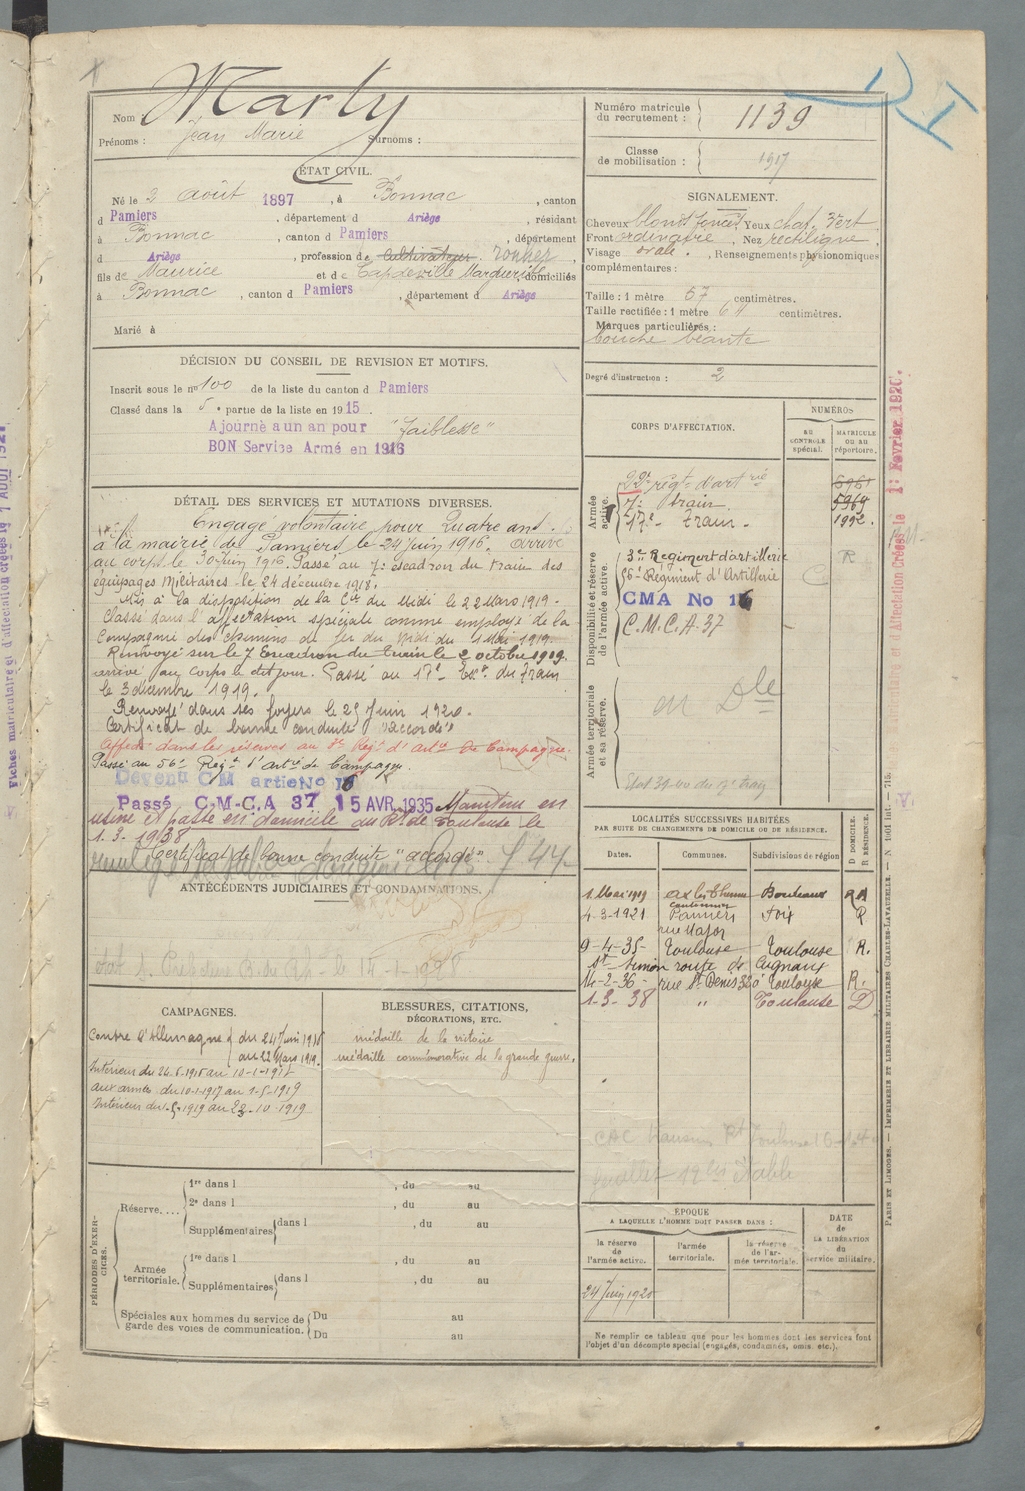 Nom Marty
Prénoms : Jean Marie Surnoms :
ÉTAT CIVIL.
Né le 2 août 1897, à Bonnac, canton
d Pamiers, département d Ariège, résidant
à Bonnac, canton d Pamiers, département
d Ariège, profession de cultivateur
fils de Maurice et de Marguerite domiciliés
à Bonnac, canton d Pamiers, département d Ariège
Marié à
DÉCISION DU CONSEIL DE REVISION ET MOTIFS.
Inscrit sous le n° 100 de la liste du canton d Pamiers
Classé dans la 5e partie de la liste en 1915.
Ajourné a un an pour "faiblesse"
BON Service Armé en 1916
DÉTAIL DES SERVICES ET MUTATIONS DIVERSES.
Engagé volontaire pour Quatre ans
à la mairie de Pamiers le 24 juin 1916. Arrivé
au corps le 30 juin 1916. Passé au 7e escadron du train des
équipages Militaires le 24 décembre 1918.
Mis à la disposition de la Cie du Midi le 22 Mars 1919.
Classé dans l'affectation spéciale comme employé de la
Compagnie des chemins de fer du Midi du 1 Mai 1919.
Renvoyé sur le 7 Escadron du Train le 2 octobre 1919.
arrivé au corps le dit jour. Passé au 17e Esc. du Train
le 3 décembre 1919.
Renvoyé dans ses foyers le 25 Juin 1920.
Certificat de bonne conduite "Accordé"
Affecté dans les réserves au 3e Régt d'artie de Campagne.
Passé au 56e Régt d'artie de Campagne.
Devenu C M artie No 16
Passé C.M.C.A 37 15 AVR. 1935 Maintenu en
usine et passé en domicile au Rt de Toulouse le
1.3.1938
Certificat de bonne conduite "accordé"
ANTÉCÉDENTS JUDICIAIRES ET CONDAMNATIONS.
CAMPAGNES.
Contre l'Allemagne du 24 Juin 1916
au 22 Mars 1919.
Intérieur du 24-6-1916 au 10-1-1917
aux armées du 10-1-1917 au 1-5-1919
Intérieur du 1-5-1919 au 23-10-1919
BLESSURES, CITATIONS,
DÉCORATIONS, ETC.
médaille de la victoire
médaille commémorative de la grande guerre.
PÉRIODES D'EXERCICES.
Réserve....
1re dans l , du au
2e dans l , du au
Supplémentaires dans l , du au
Armée territoriale.
1re dans l , du au
Supplémentaires dans l , du au
Spéciales aux hommes du service de
garde des voies de communication.
Du au
Du au
Numéro matricule
du recrutement : 1139
Classe
de mobilisation : 1917
SIGNALEMENT.
Cheveux blond foncés Yeux chat. vert
Front ordinaire, Nez rectiligne,
Visage ovale. , Renseignements physionomiques
complémentaires :
Taille : 1 mètre 67 centimètres.
Taille rectifiée : 1 mètre centimètres.
Marques particulières :
bouche béante
Degré d'instruction : 2
CORPS D'AFFECTATION.
NUMÉROS
AU CONTROLE spécial.
MATRICULE OU AU répertoire.
Armée active.
régt d'artrie
7e train. 5969
17e train. 1992.
Disponibilité et réserve de l'armée active.
3e Régiment d'artillerie R
56e Régiment d'Artillerie C
CMA No 16
C.M.C.A. 37
Armée territoriale et sa réserve.
en Dle
LOCALITÉS SUCCESSIVES HABITÉES
PAR SUITE DE CHANGEMENTS DE DOMICILE OU DE RÉSIDENCE.
D DOMICILE.
R RÉSIDENCE.
Dates. Communes. Subdivisions de région
1 Mai 1919 Bordeaux
cantonnier
4-3-1921 Pamiers Foix R
rue Major
9-4-35 Toulouse Toulouse R.
St Simon route de Cugnaux
14-2-36 rue St Denis à Toulouse R.
1-3-38 " Toulouse D
ÉPOQUE
A LAQUELLE L'HOMME DOIT PASSER DANS :
la réserve de l'armée active.
l'armée territoriale.
la réserve de l'armée territoriale.
DATE de LA LIBÉRATION du service militaire.
24 Juin 1920
Ne remplir ce tableau que pour les hommes dont les services font
l'objet d'un décompte spécial (engagés, condamnés, omis, etc.).
PARIS ET LIMOGES. — IMPRIMERIE ET LIBRAIRIE MILITAIRES CHARLES-LAVAUZELLE.